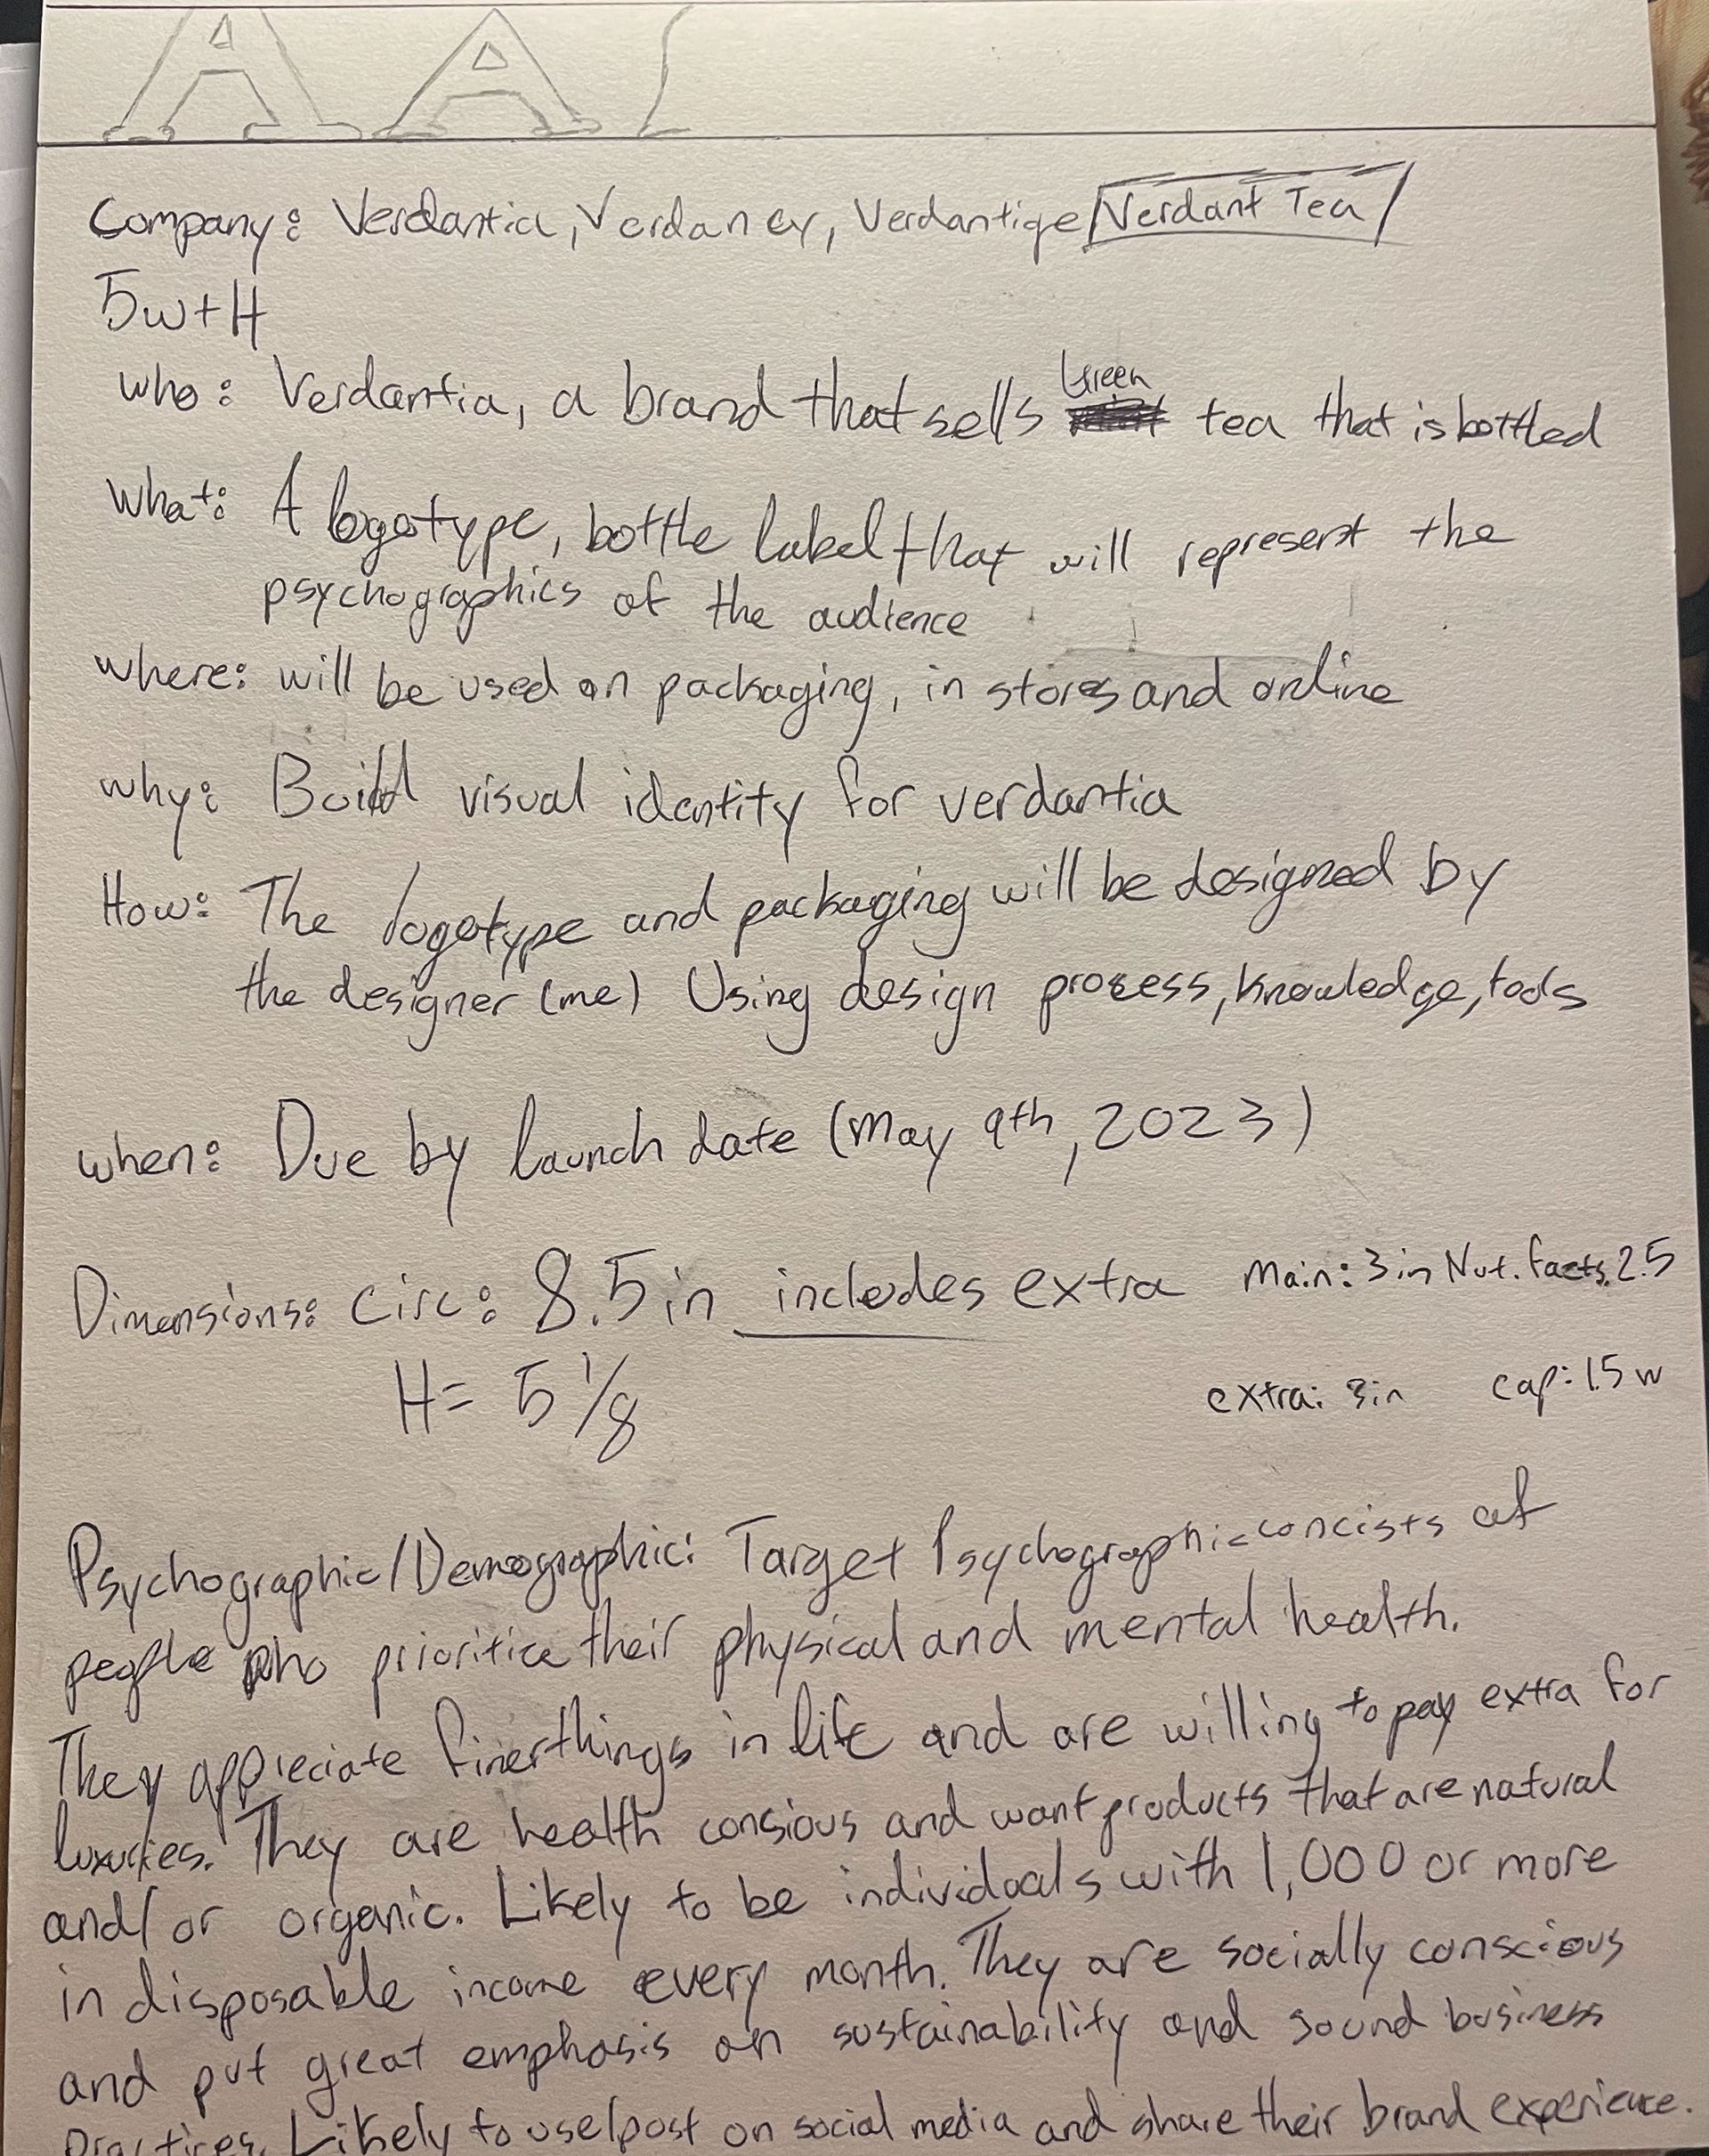 A A
Company: Verdantia, Verdancy, Verdantige Verdant Tea
5w+H
who: Verdantia, a brand that sells Green tea that is bottled
what: A logotype, bottle label that will represent the
psychographics of the audience
where: will be used on packaging, in stores and online
why: Build visual identity for verdantia
How: The logotype and packaging will be designed by
the designer (me) Using design process, knowledge, tools
when: Due by launch date (may 9th, 2023)
Dimensions: circ: 8.5 in includes extra main: 3 in Nut. facts. 2.5
H= 5 1/8 extra: 3in cap: 1.5 w
Psychographic/Demographic: Target Psychographic concists of
people who prioritice their physical and mental health.
They appreciate finer things in life and are willing to pay extra for
luxuries. They are health consious and want products that are natural
and/or organic. Likely to be individuals with 1,000 or more
in disposable income every month. They are socially conscious
and put great emphasis on sustainability and sound business
Practices. Likely to use/post on social media and share their brand experience.